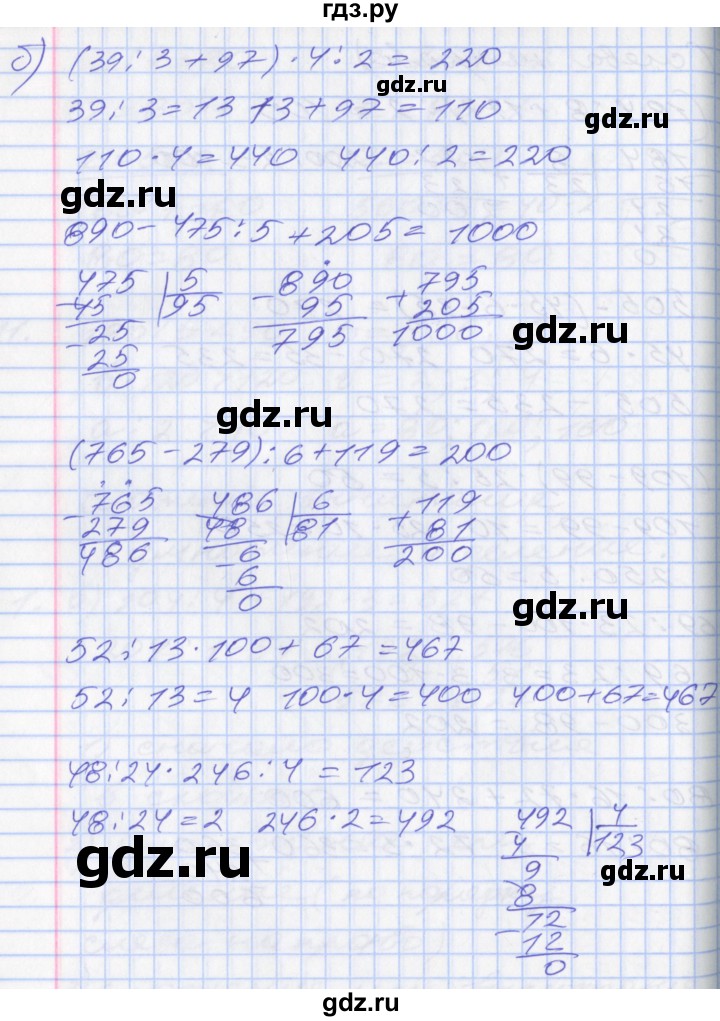 гдз.ру
б) (39 : 3 + 97) · 4 : 2 = 220
gdz.ru
39 : 3 = 13 13 + 97 = 110
gdz.ru
110 · 4 = 440 440 : 2 = 220
gdz.ru
890 - 475 : 5 + 205 = 1000
475 5 890 795
- 45 95 - 95 + 205
- 25 795 1000
gdz.ru
25
0
gdz.ru
(765 - 279) : 6 + 119 = 200
- 765 486 6 119
279 48 81 + 81
486 - 6 200
6
gdz.ru
0
52 : 13 · 100 + 67 = 467
52 : 13 = 4 100 · 4 = 400 400 + 67 = 467
48 : 24 · 246 : 4 = 123
48 : 24 = 2 246 · 2 = 492 492 4
4 123
gdz.ru
9
gdz.ru
8
- 12
12
0
gdz.ru